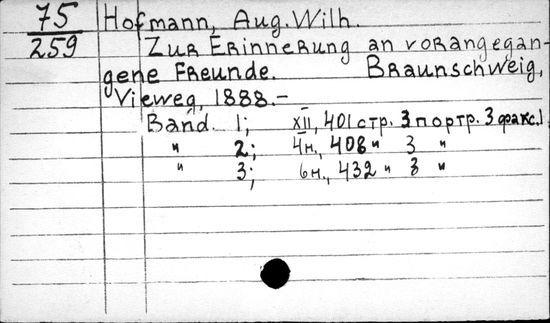 75 Hofmann, Aug. Wilh.
259 Zur Erinnerung an vorangegan-
gene Freunde. Braunschweig,
Vieweg, 1888.-
Band. 1; XII, 401 стр. 3 портр. 3 факс.1
" 2; 4н., 408 " 3 "
" 3; 6н., 432 " 3 "